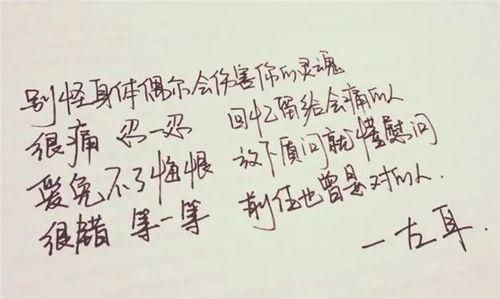 别怪身体偶尔会伤害你的灵魂
很痛 忍一忍 回忆留给会痛的人
爱免不了悔恨 放下质问就懂慰问
很错 等一等 前任也曾是对的人.
—左耳.